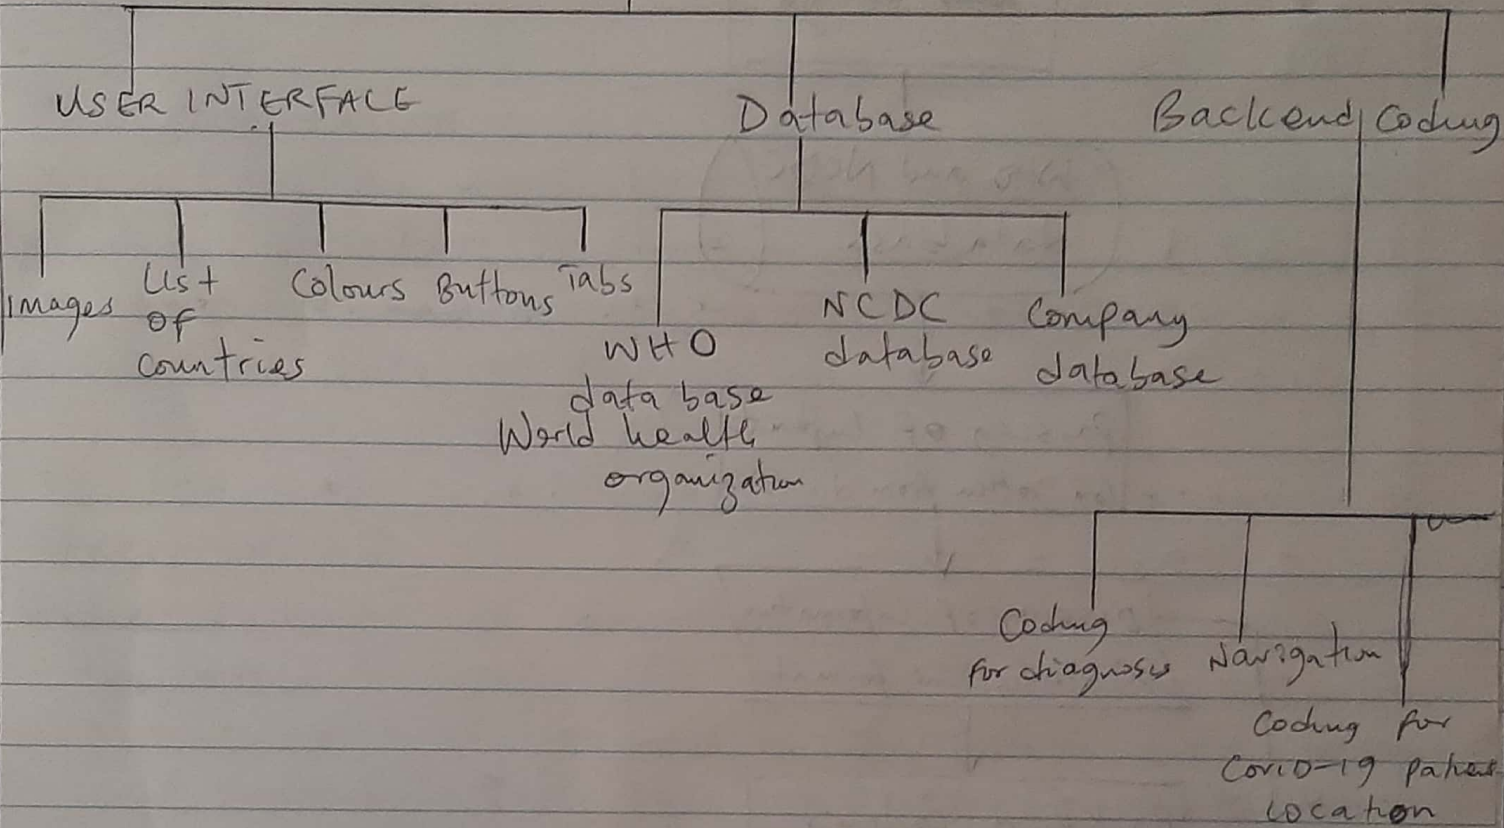 USER INTERFACE
Database
Backend Coding
Images
List
of
countries
Colours
Buttons
Tabs
WHO
data base
World health
organization
NCDC
database
Company
database
Coding
for diagnosis
Navigation
Coding for
COVID-19
location